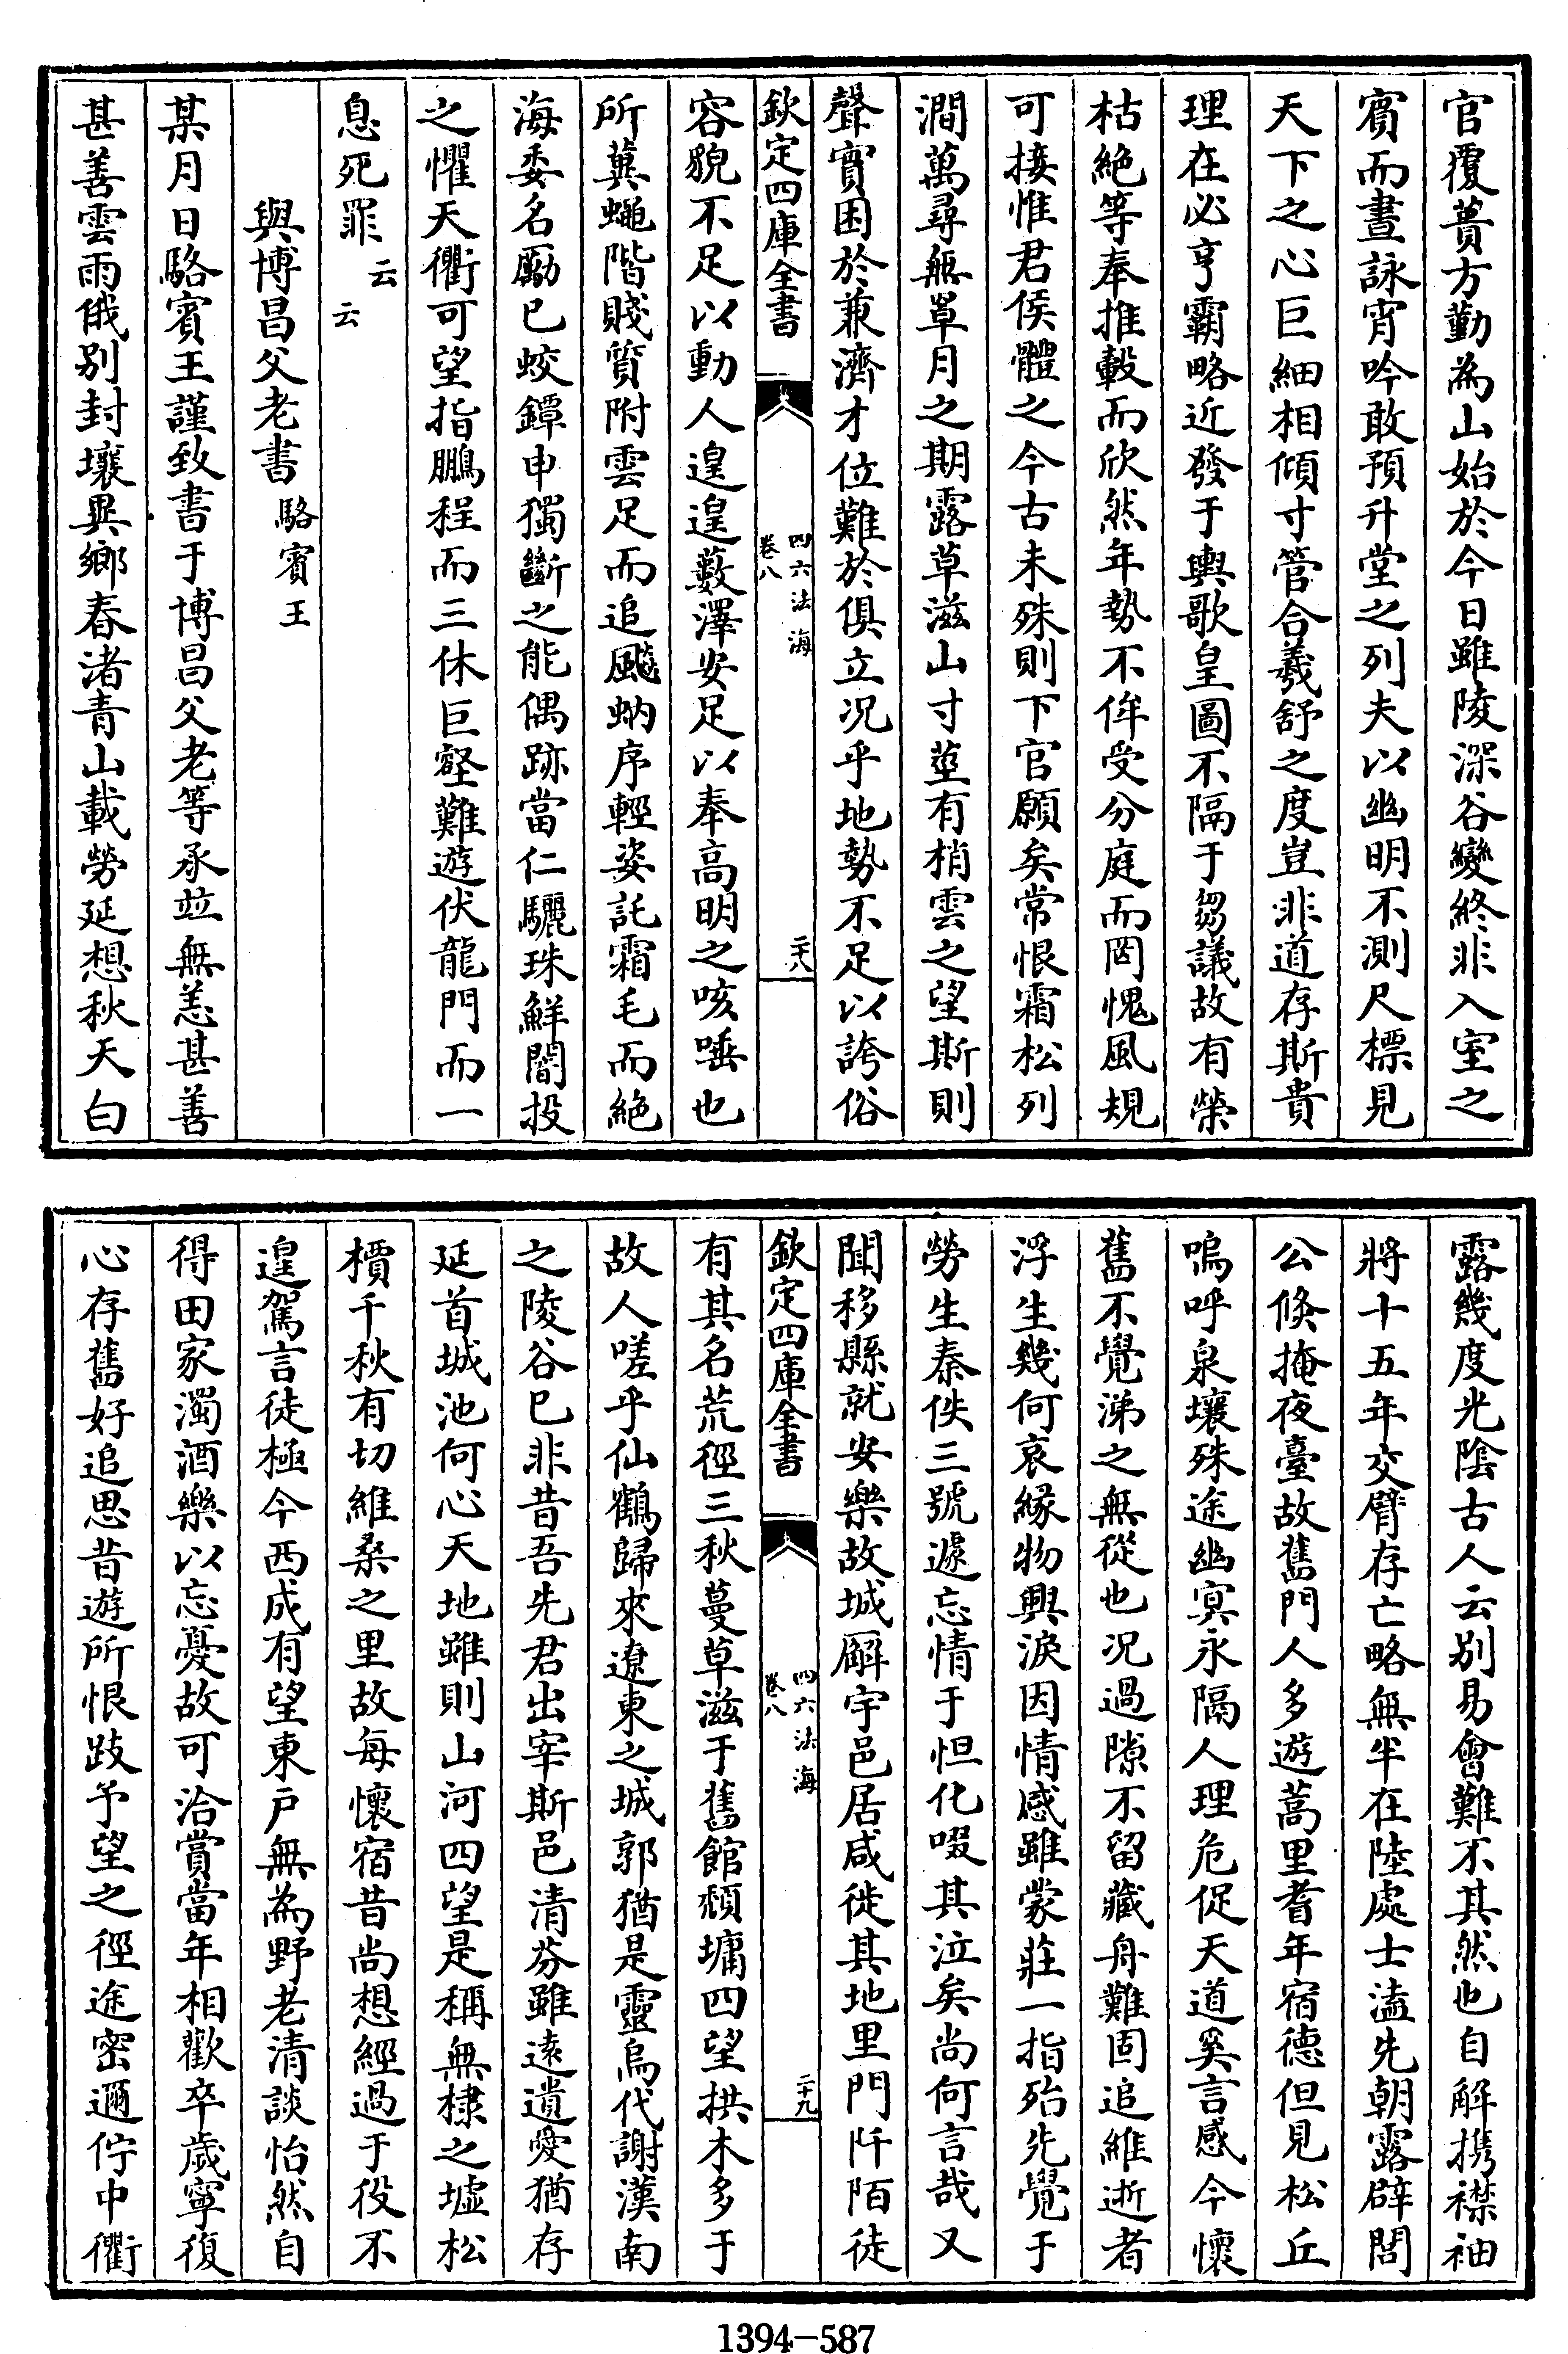 官覆蕢方勤為山始於今日雖陵深谷變終非入室之
賓而晝詠宵吟敢預升堂之列夫以幽明不測尺標見
天下之心巨細相傾寸管合羲舒之度豈非道存斯貴
理在必亨霸略近發于輿歌皇圖不隔于芻議故有榮
枯絶等奉推轂而欣然年勢不侔受分庭而罔愧風規
可接惟君侯體之今古未殊則下官願矣常恨霜松列
澗萬尋無罩月之期露草滋山寸莖有梢雲之望斯則
聲實困於兼濟才位難於俱立况乎地勢不足以誇俗
欽定四庫全書
四六法海
卷八
二十八
容貌不足以動人遑遑藪澤安足以奉高明之咳唾也
所兾蠅階賤質附雲足而追飈蚋序輕姿託霜毛而絶
海委名勵已蛟鐔申獨斷之能偶跡當仁驪珠鮮闇投
之懼天衢可望指鵬程而三休巨壑難遊伏龍門而一
息死罪云云
與博昌父老書 駱賓王
某月日駱賓王謹致書于博昌父老等承並無恙甚善
甚善雲雨俄别封壤異鄉春渚青山載勞延想秋天白
露幾度光陰古人云别易會難不其然也自解携襟袖
將十五年交臂存亡略無半在陸處士溘先朝露辟閭
公倏掩夜臺故舊門人多遊蒿里耆年宿德但見松丘
嗚呼泉壤殊途幽冥永隔人理危促天道奚言感今懷
舊不覺涕之無從也况過隙不留藏舟難固追維逝者
浮生幾何哀縁物興淚因情感雖蒙莊一指殆先覺于
勞生秦佚三號遽忘情于怛化啜其泣矣尚何言哉又
聞移縣就安樂故城廨宇邑居咸徙其地里門阡陌徒
欽定四庫全書
四六法海
卷八
二十九
有其名荒徑三秋蔓草滋于舊館頹墉四望拱木多于
故人嗟乎仙鶴歸來遼東之城郭猶是靈烏代謝漢南
之陵谷已非昔吾先君出宰斯邑清芬雖遠遺愛猶存
延首城池何心天地雖則山河四望是稱無棣之墟松
檟千秋有切維桑之里故每懷宿昔尚想經過于役不
遑駕言徒極今西成有望東户無為野老清談怡然自
得田家濁酒樂以忘憂故可洽賞當年相歡卒歲寧復
心存舊好追思昔遊所恨跂予望之徑途密邇佇中衢
1394-587